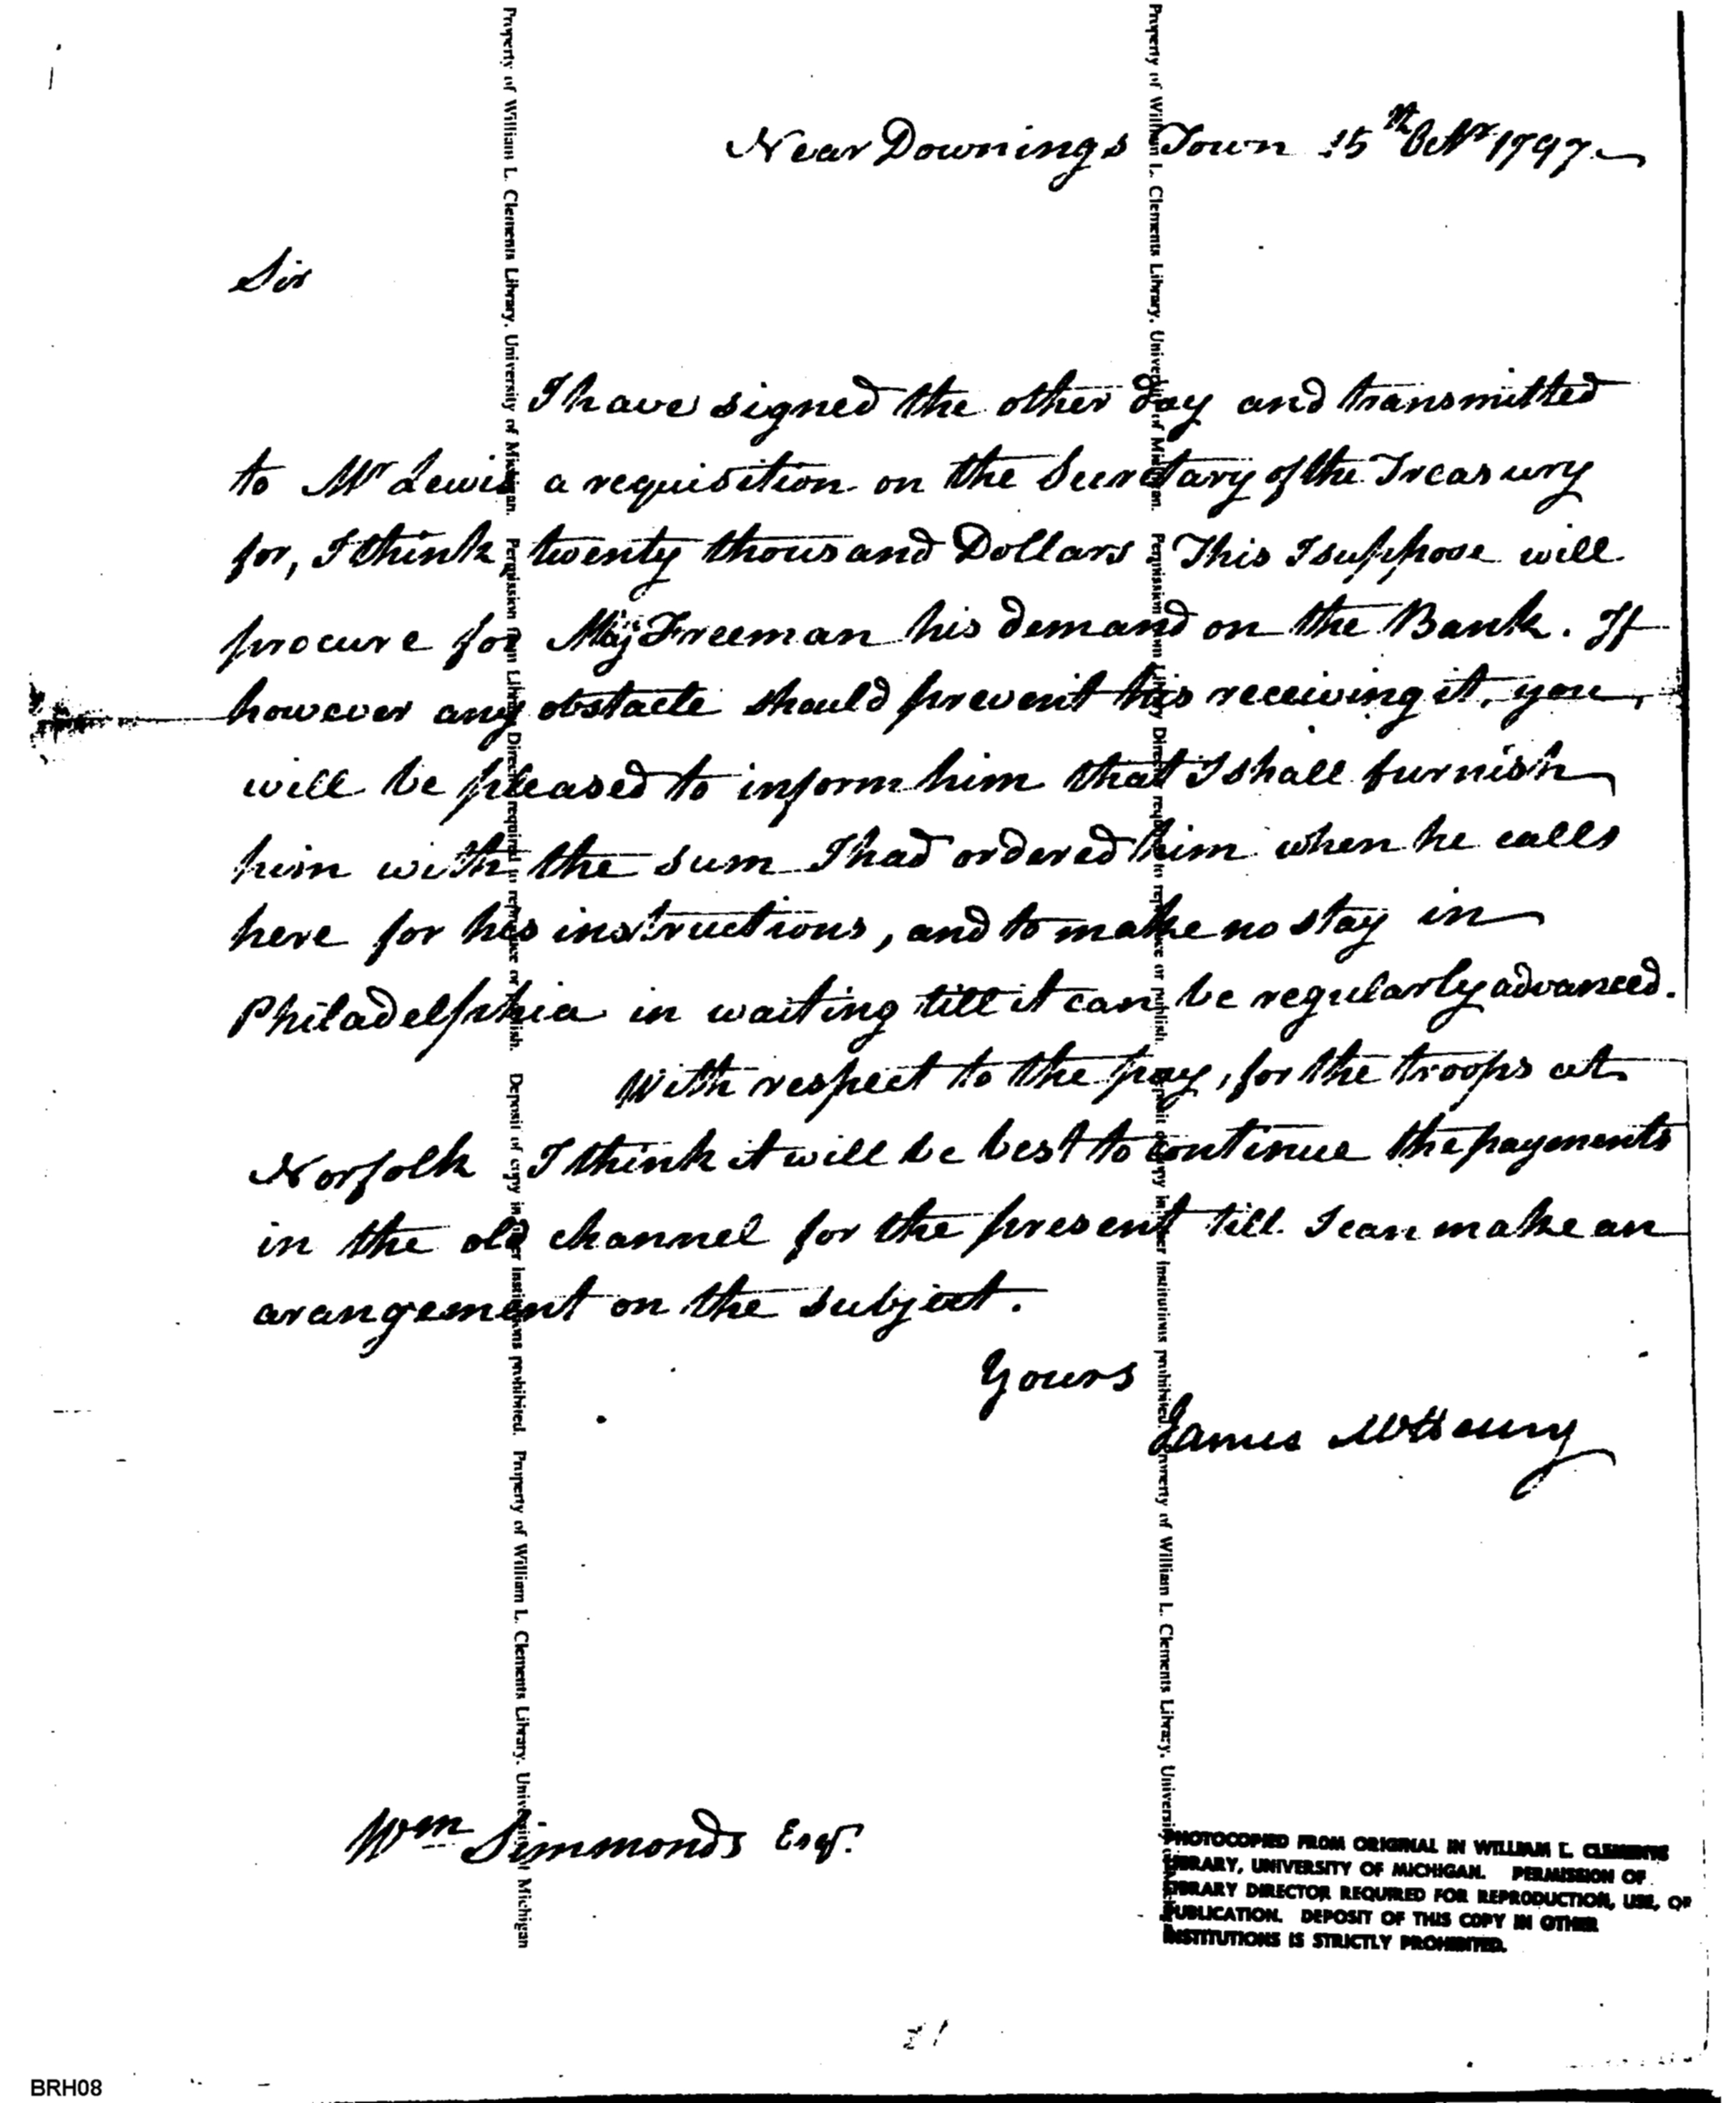 Near Downings Town 15th Octr 1797.
Sir
I have signed the other day and transmitted
to Mr Lewis a requisition on the Secretary of the Treasury
for, I think twenty thousand Dollars This I suppose will
procure for Maj Freeman his demand on the Bank. If
however any obstacle should prevent his receiving it, you
will be pleased to inform him that I shall furnish
him with the sum I had ordered him when he calls
here for his instructions, and to make no stay in
Philadelphia in waiting till it can be regularly advanced.
With respect to the pay, for the troops at
Norfolk I think it will be best to continue the payments
in the old channel for the present till I can make an
arangement on the subject.
Yours
James McHenry
Wm Simmonds Esqr.
PHOTOCOPIED FROM ORIGINAL IN WILLIAM L. CLEMENTS
LIBRARY, UNIVERSITY OF MICHIGAN. PERMISSION OF
LIBRARY DIRECTOR REQUIRED FOR REPRODUCTION, USE, OR
PUBLICATION. DEPOSIT OF THIS COPY IN OTHER
INSTITUTIONS IS STRICTLY PROHIBITED.
Property of William L. Clements Library, University of Michigan. Permission from Library Director required to reproduce or publish. Deposit of copy in other institutions prohibited. Property of William L. Clements Library, University of Michigan
Property of William L. Clements Library, University of Michigan. Permission from Library Director required to reproduce or publish. Deposit of copy in other institutions prohibited. Property of William L. Clements Library, University
BRH08